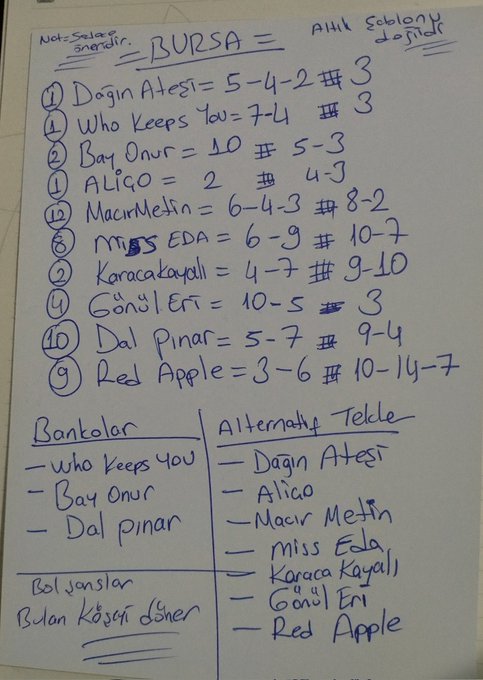 Not = Sadece
öneridir.
= BURSA =
Altılı Şablonu
değildi
① Dağın Ateşi = 5-4-2 # 3
① Who Keeps You = 7-4 # 3
② Bay Onur = 10 # 5-3
① ALİGO = 2 # 4-3
⑫ Macır Metin = 6-4-3 # 8-2
⑧ miss EDA = 6-9 # 10-7
② Karaca Kayalı = 4-7 # 9-10
④ Gönül Eri = 10-5 # 3
⑩ Dal Pınar = 5-7 # 9-4
⑨ Red Apple = 3-6 # 10-14-7
Bankolar
- Who Keeps YOU
- Bay Onur
- Dal pınar
Bol şanslar
Bulan Köşeyi döner
Alternatif Tekler
- Dağın Ateşi
- Aligo
- Macır Metin
- miss Eda
- Karaca Kayalı
- Gönül Eri
- Red Apple